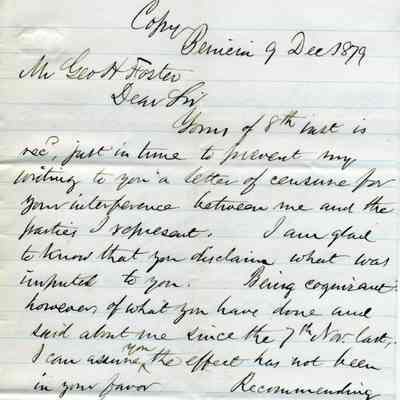 Copy
Benicia 9 Dec 1879
Mr Geo H Foster
Dear Sir
Yours of 8th inst is
recd, just in time to prevent my
writing to you a letter of censure for
your interference between me and the
parties I represent. I am glad
to know that you disclaim what was
imputed to you. Being cognizant
however of what you have done and
said about me since the 7th Nov. last,
I can assure you the effect has not been
in your favor Recommending